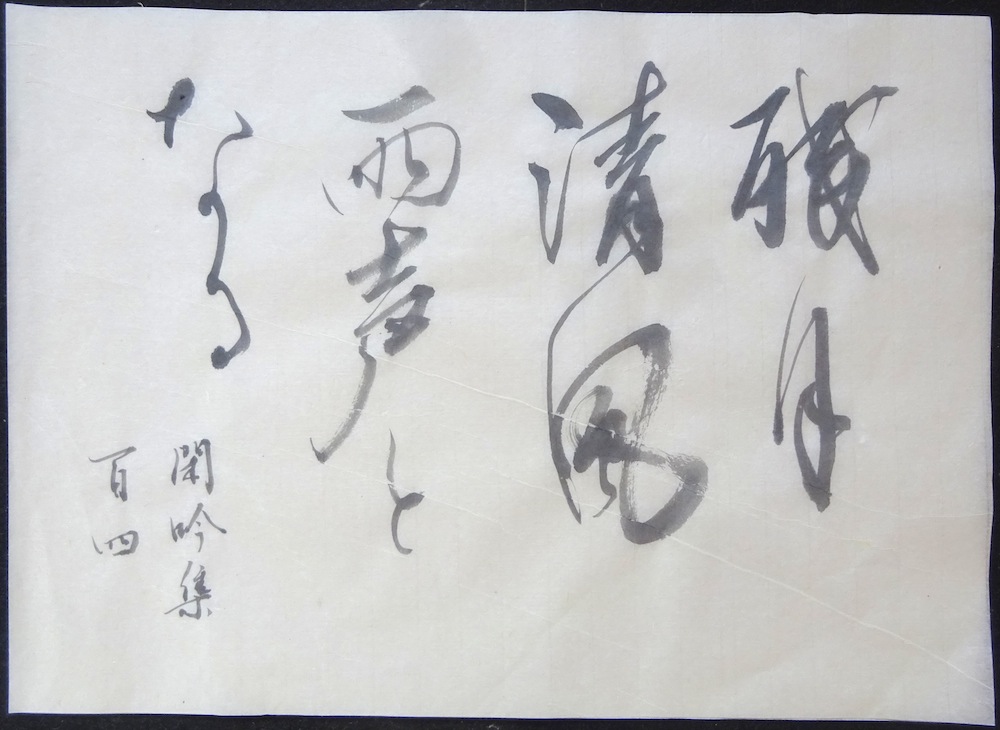 残月
清風
雨声と
なる
閑吟集
百四